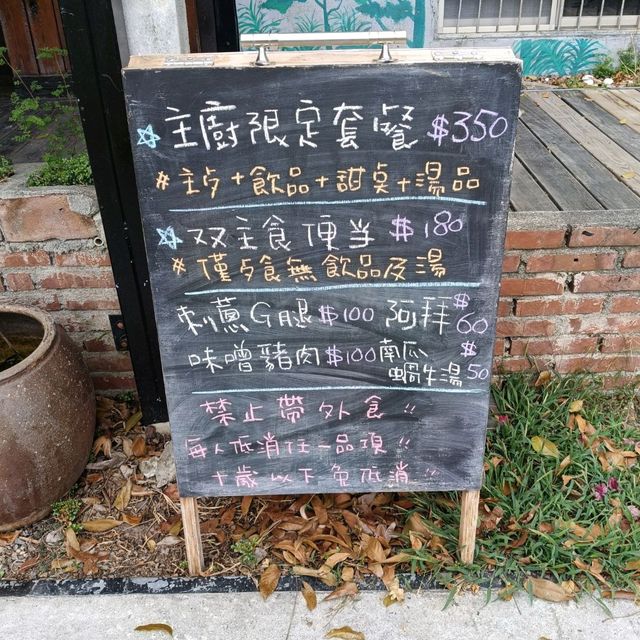 主廚限定套餐 $350
*主歺+飲品+甜桌+湯品
双主食便当 $180
*僅歺食無飲品及湯
刺蔥G腿 $100 阿拜 $60
味噌豬肉 $100 南瓜蝸牛湯 $50
禁止帶外食!!
每人低消任一品項!!
十歲以下免低消!!